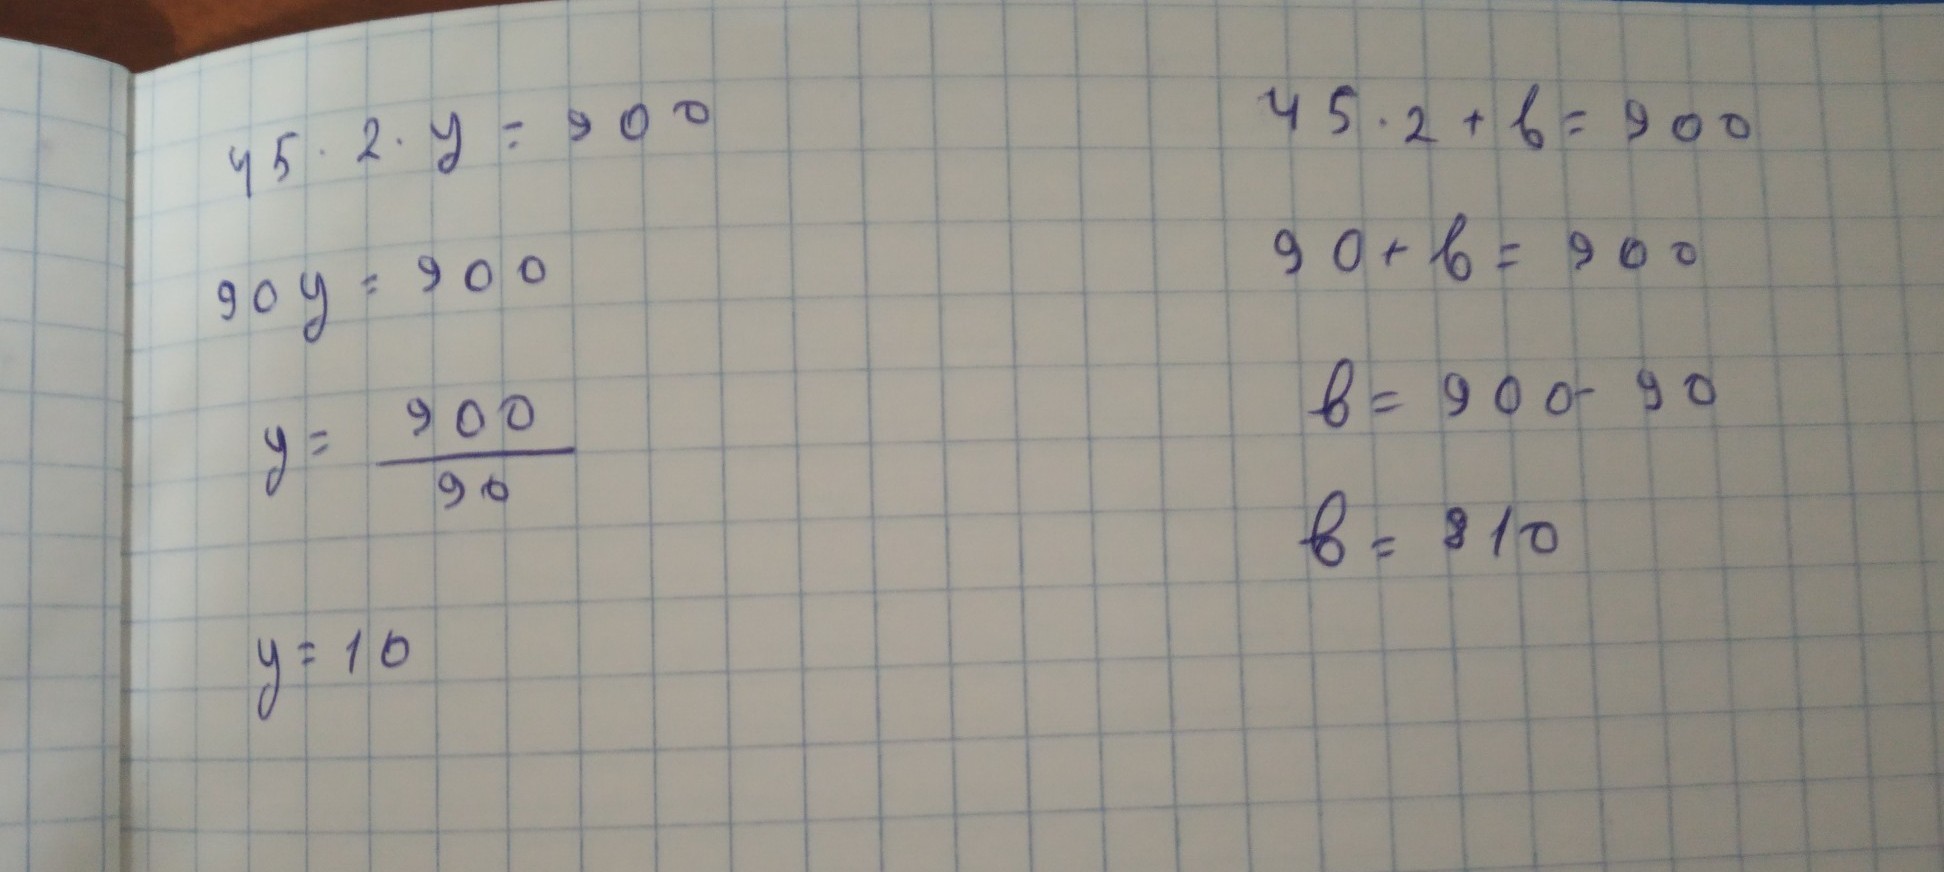 45 · 2 · y = 900
90y = 900
y = 900/90
y = 10
45 · 2 + b = 900
90 + b = 900
b = 900 - 90
b = 810